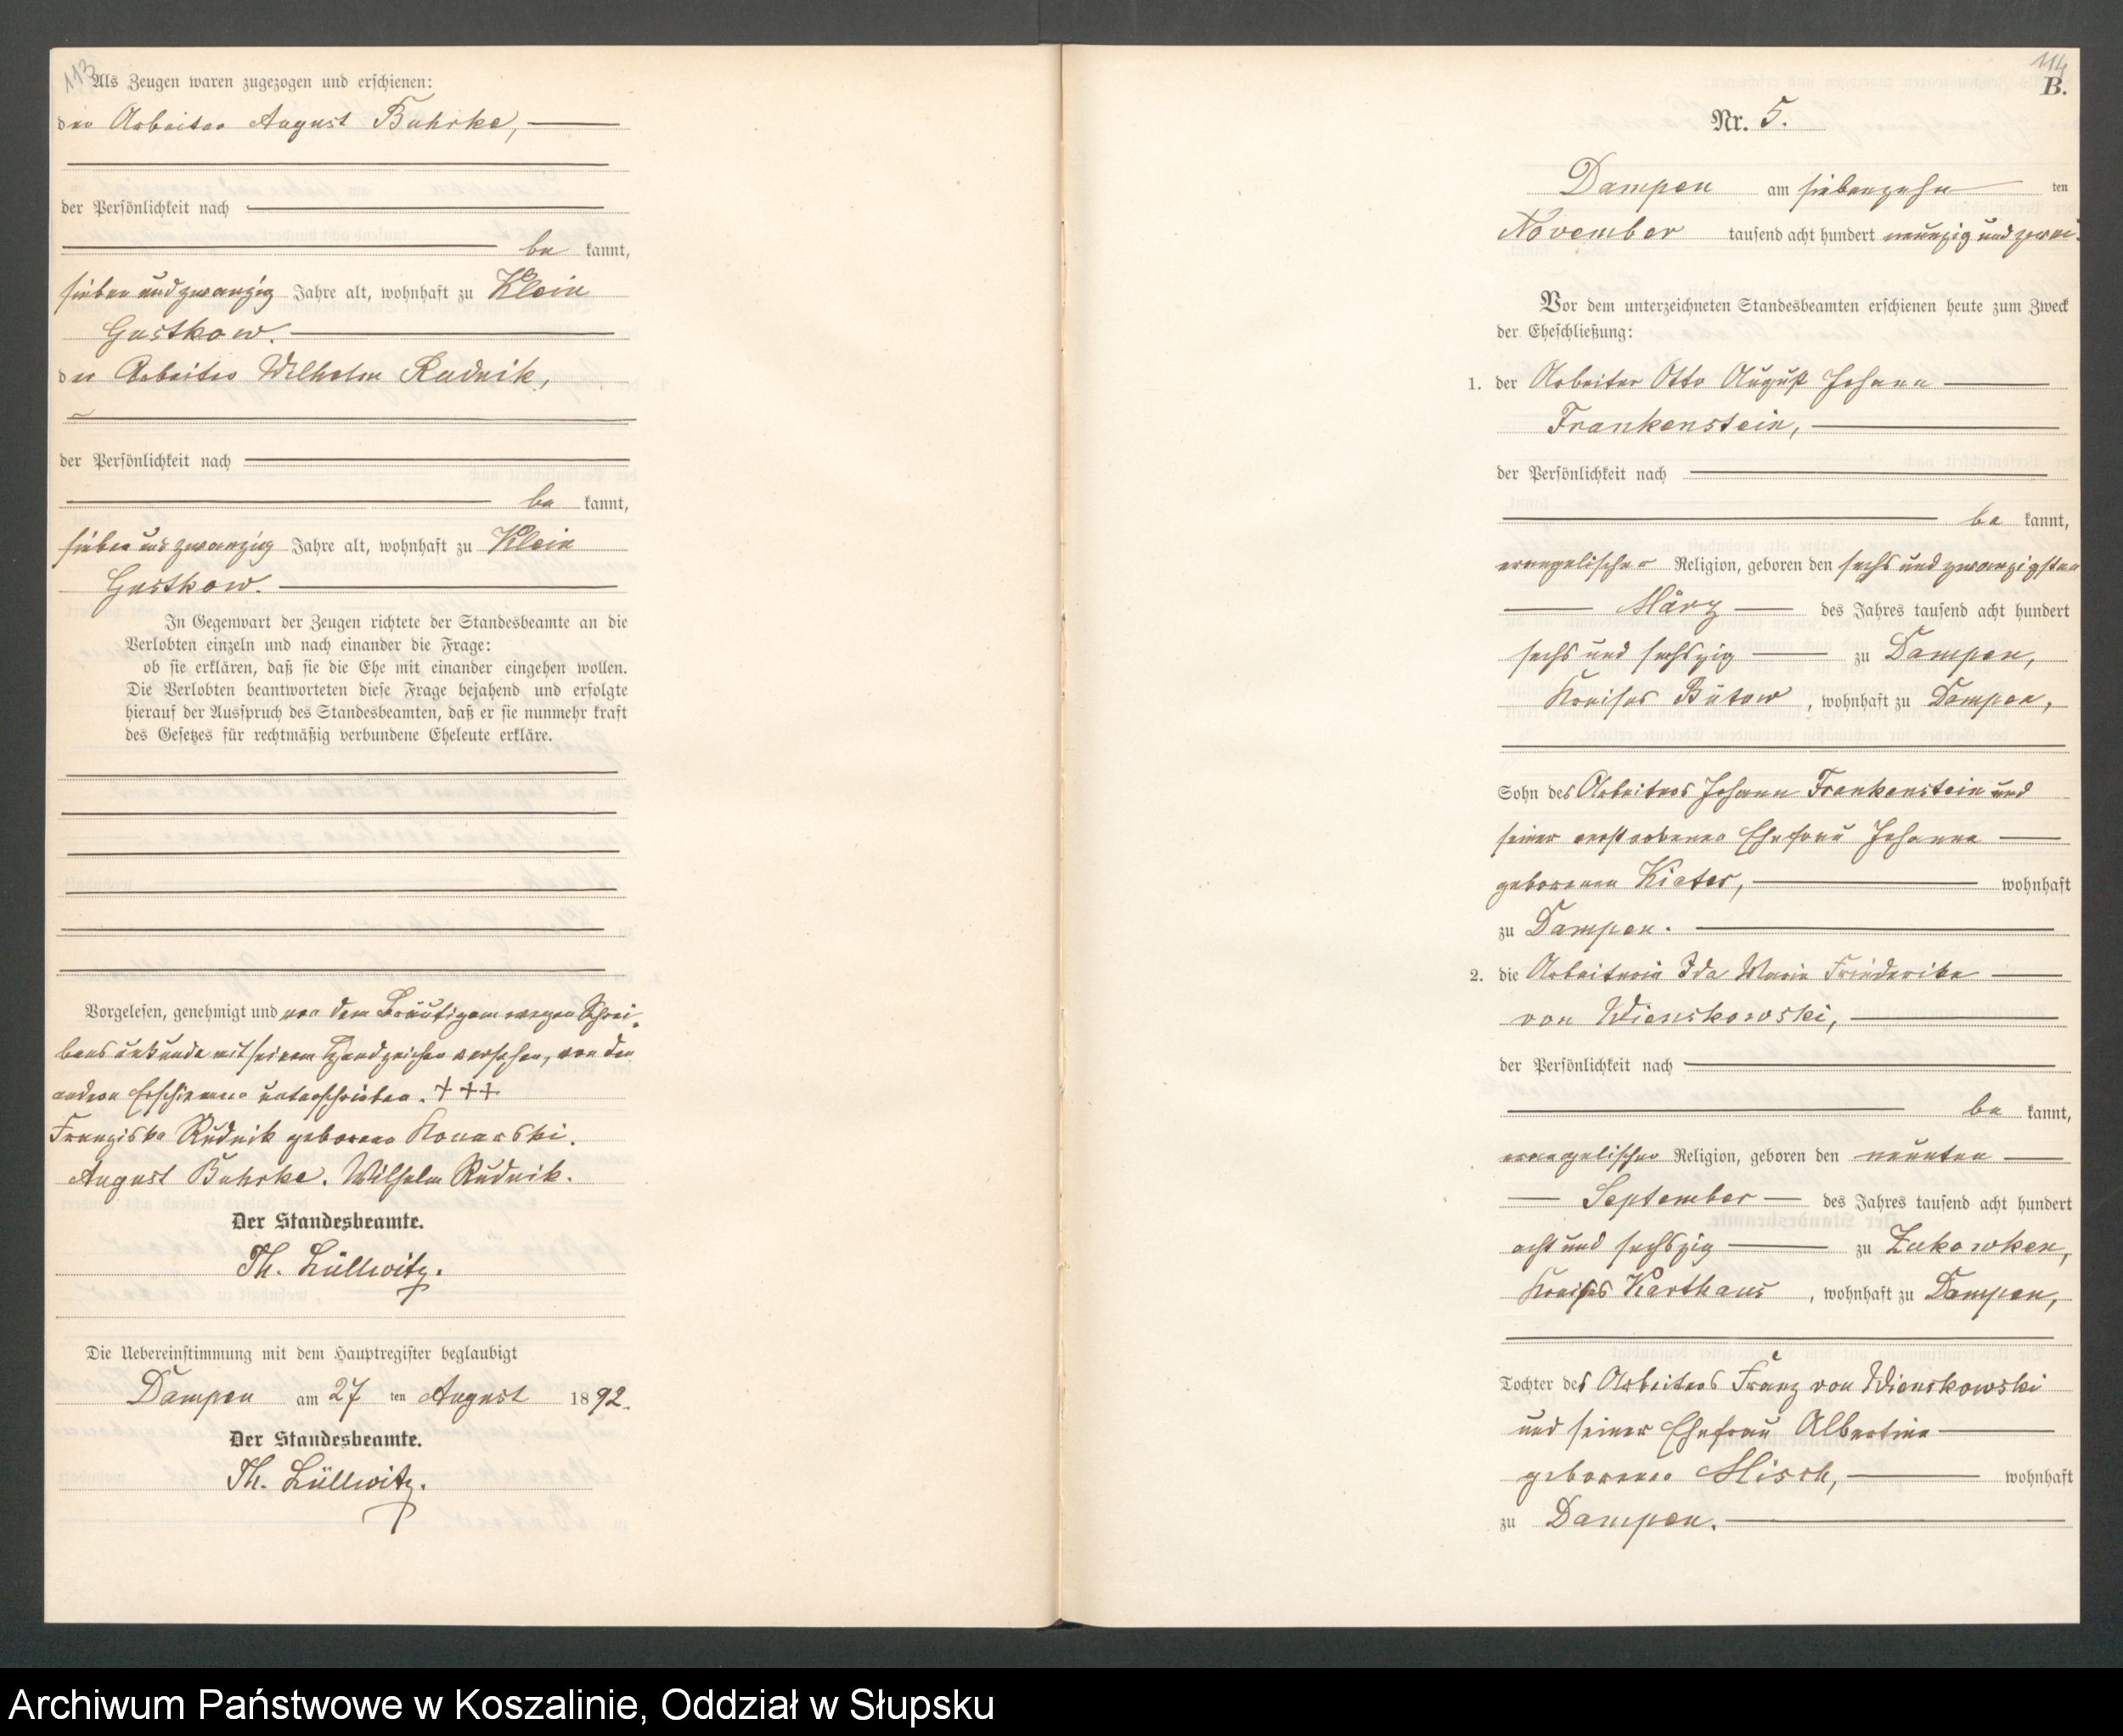 113
Als Zeugen waren zugezogen und erschienen:
der Arbeiter August Buhrke,
der Persönlichkeit nach
be kannt,
sieben und zwanzig Jahre alt, wohnhaft zu Klein
Gustkow.
der Arbeiter Wilhelm Rudnik,
der Persönlichkeit nach
be kannt,
sieben und zwanzig Jahre alt, wohnhaft zu Klein
Gustkow.
In Gegenwart der Zeugen richtete der Standesbeamte an die
Verlobten einzeln und nach einander die Frage:
ob sie erklären, daß sie die Ehe mit einander eingehen wollen.
Die Verlobten beantworteten diese Frage bejahend und erfolgte
hierauf der Ausspruch des Standesbeamten, daß er sie nunmehr kraft
des Gesetzes für rechtmäßig verbundene Eheleute erkläre.
Vorgelesen, genehmigt und von dem Bräutigam wegen Schrei-
bens unkunde mit seinem Handzeichen versehen, von den
andern Erschienenen unterschrieben. +++
Franziska Rudnik geborene Konarski.
August Buhrke. Wilhelm Rudnik.
Der Standesbeamte.
Th. Lüllwitz.
Die Uebereinstimmung mit dem Hauptregister beglaubigt
Dampen am 27 ten August 1892.
Der Standesbeamte.
Th. Lüllwitz.
114
B.
Nr. 5.
Dampen am siebenzehn ten
November tausend acht hundert neunzig und zwei.
Vor dem unterzeichneten Standesbeamten erschienen heute zum Zweck
der Eheschließung:
1. der Arbeiter Otto August Johann
Frankenstein,
der Persönlichkeit nach
be kannt,
evangelischer Religion, geboren den sechs und zwanzigsten
März des Jahres tausend acht hundert
sechs und sechszig zu Dampen,
Kreises Bütow, wohnhaft zu Dampen,
Sohn des Arbeiters Johann Frankenstein und
seiner verstorbenen Ehefrau Johanna
geborenen Kieter, wohnhaft
zu Dampen.
2. die Arbeiterin Ida Maria Friederike
von Wienskowski,
der Persönlichkeit nach
be kannt,
evangelischer Religion, geboren den neunten
September des Jahres tausend acht hundert
acht und sechszig zu Zukowken,
Kreises Karthaus, wohnhaft zu Dampen,
Tochter des Arbeiters Franz von Wienskowski
und seiner Ehefrau Albertine
geborenen Misch, wohnhaft
zu Dampen.
Archiwum Państwowe w Koszalinie, Oddział w Słupsku